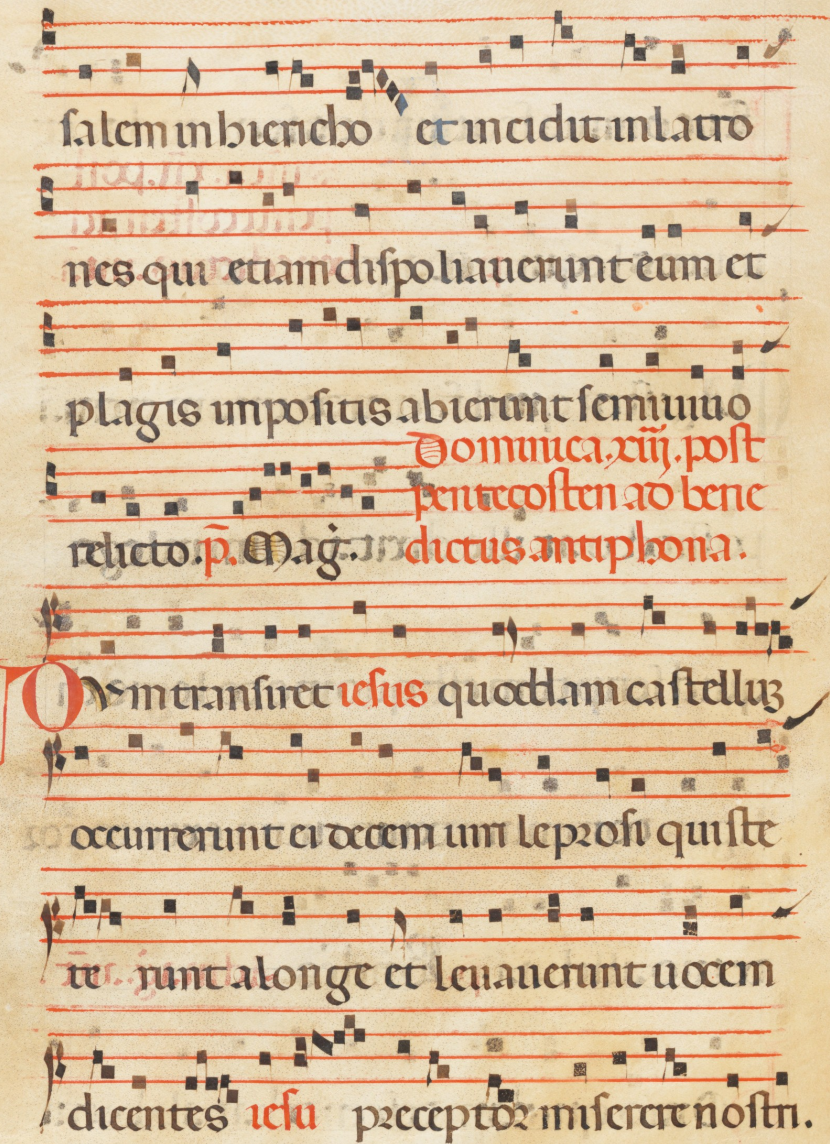 salem in hiericho et incidit in latro
nes qui etiam dispoliauerunt eum et
plagis impositis abierunt semiuiuo
Dominica.xiij.post
pentecosten ad bene
relicto.p̄. Maḡ. dictus antiphona.
Dvm transiret iesus quoddam castelluʒ
occurrerunt ei decem uiri leprosi qui ste
te runt alonge et leuauerunt uocem
dicentes iesu preceptor miserere nostri.